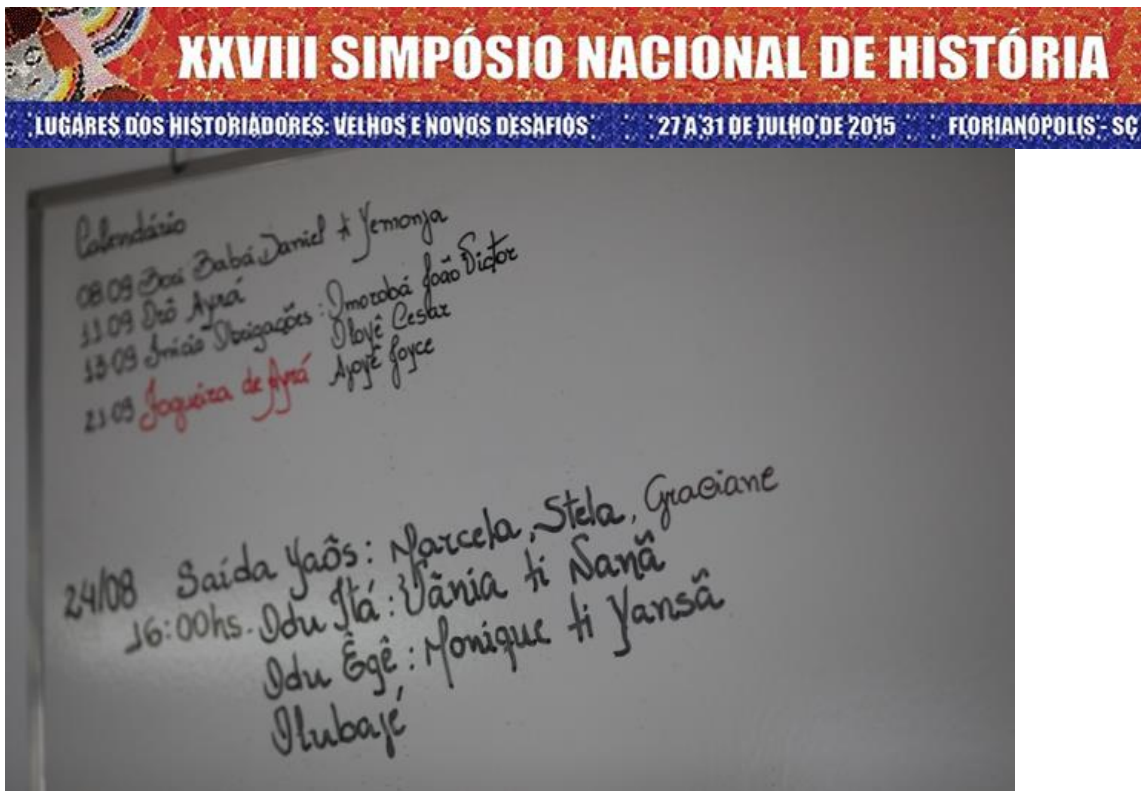 XXVIII SIMPÓSIO NACIONAL DE HISTÓRIA
LUGARES DOS HISTORIADORES: VELHOS E NOVOS DESAFIOS 27 A 31 DE JULHO DE 2015 FLORIANÓPOLIS - SC
Calendário
08.09 Bori Babá Daniel ti Yemonja
11.09 Orô Ayrá
13.09 Início Obrigações: Omorobá João Victor
Oloyê Cesar
21.09 Fogueira de Ayrá Ajoyê Joyce
24/08 Saída Yaôs: Marcela, Stela, Graciane
16:00hs. Odu Itá: Vânia ti Nanã
Odu Êgê: Monique ti Yansã
Olubajé